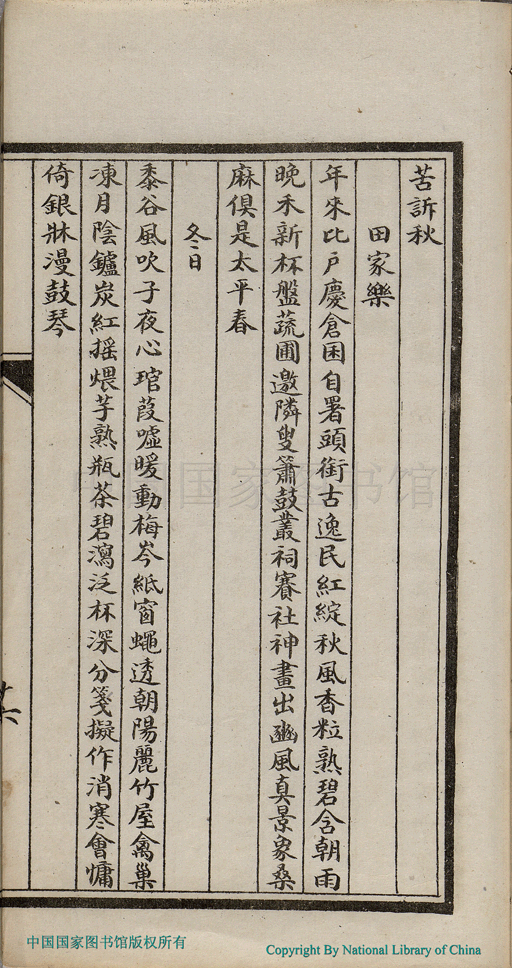 苦訴秋
田家樂
年來比戶慶倉囷自署頭銜古逸民紅綻秋風香粒熟碧含朝雨
晚禾新杯盤蔬圃邀隣叟簫鼓叢祠賽社神畫出豳風真景象桑
麻俱是太平春
冬日
黍谷風吹子夜心琯葭噓暖動梅岑紙窗蠅透朝陽麗竹屋禽巢
凍月陰鑪炭紅摇煨芋熟瓶茶碧瀉泛杯深分箋擬作消寒會慵
倚銀牀漫鼓琴
中国国家图书馆
中国国家图书馆版权所有
Copyright By National Library of China